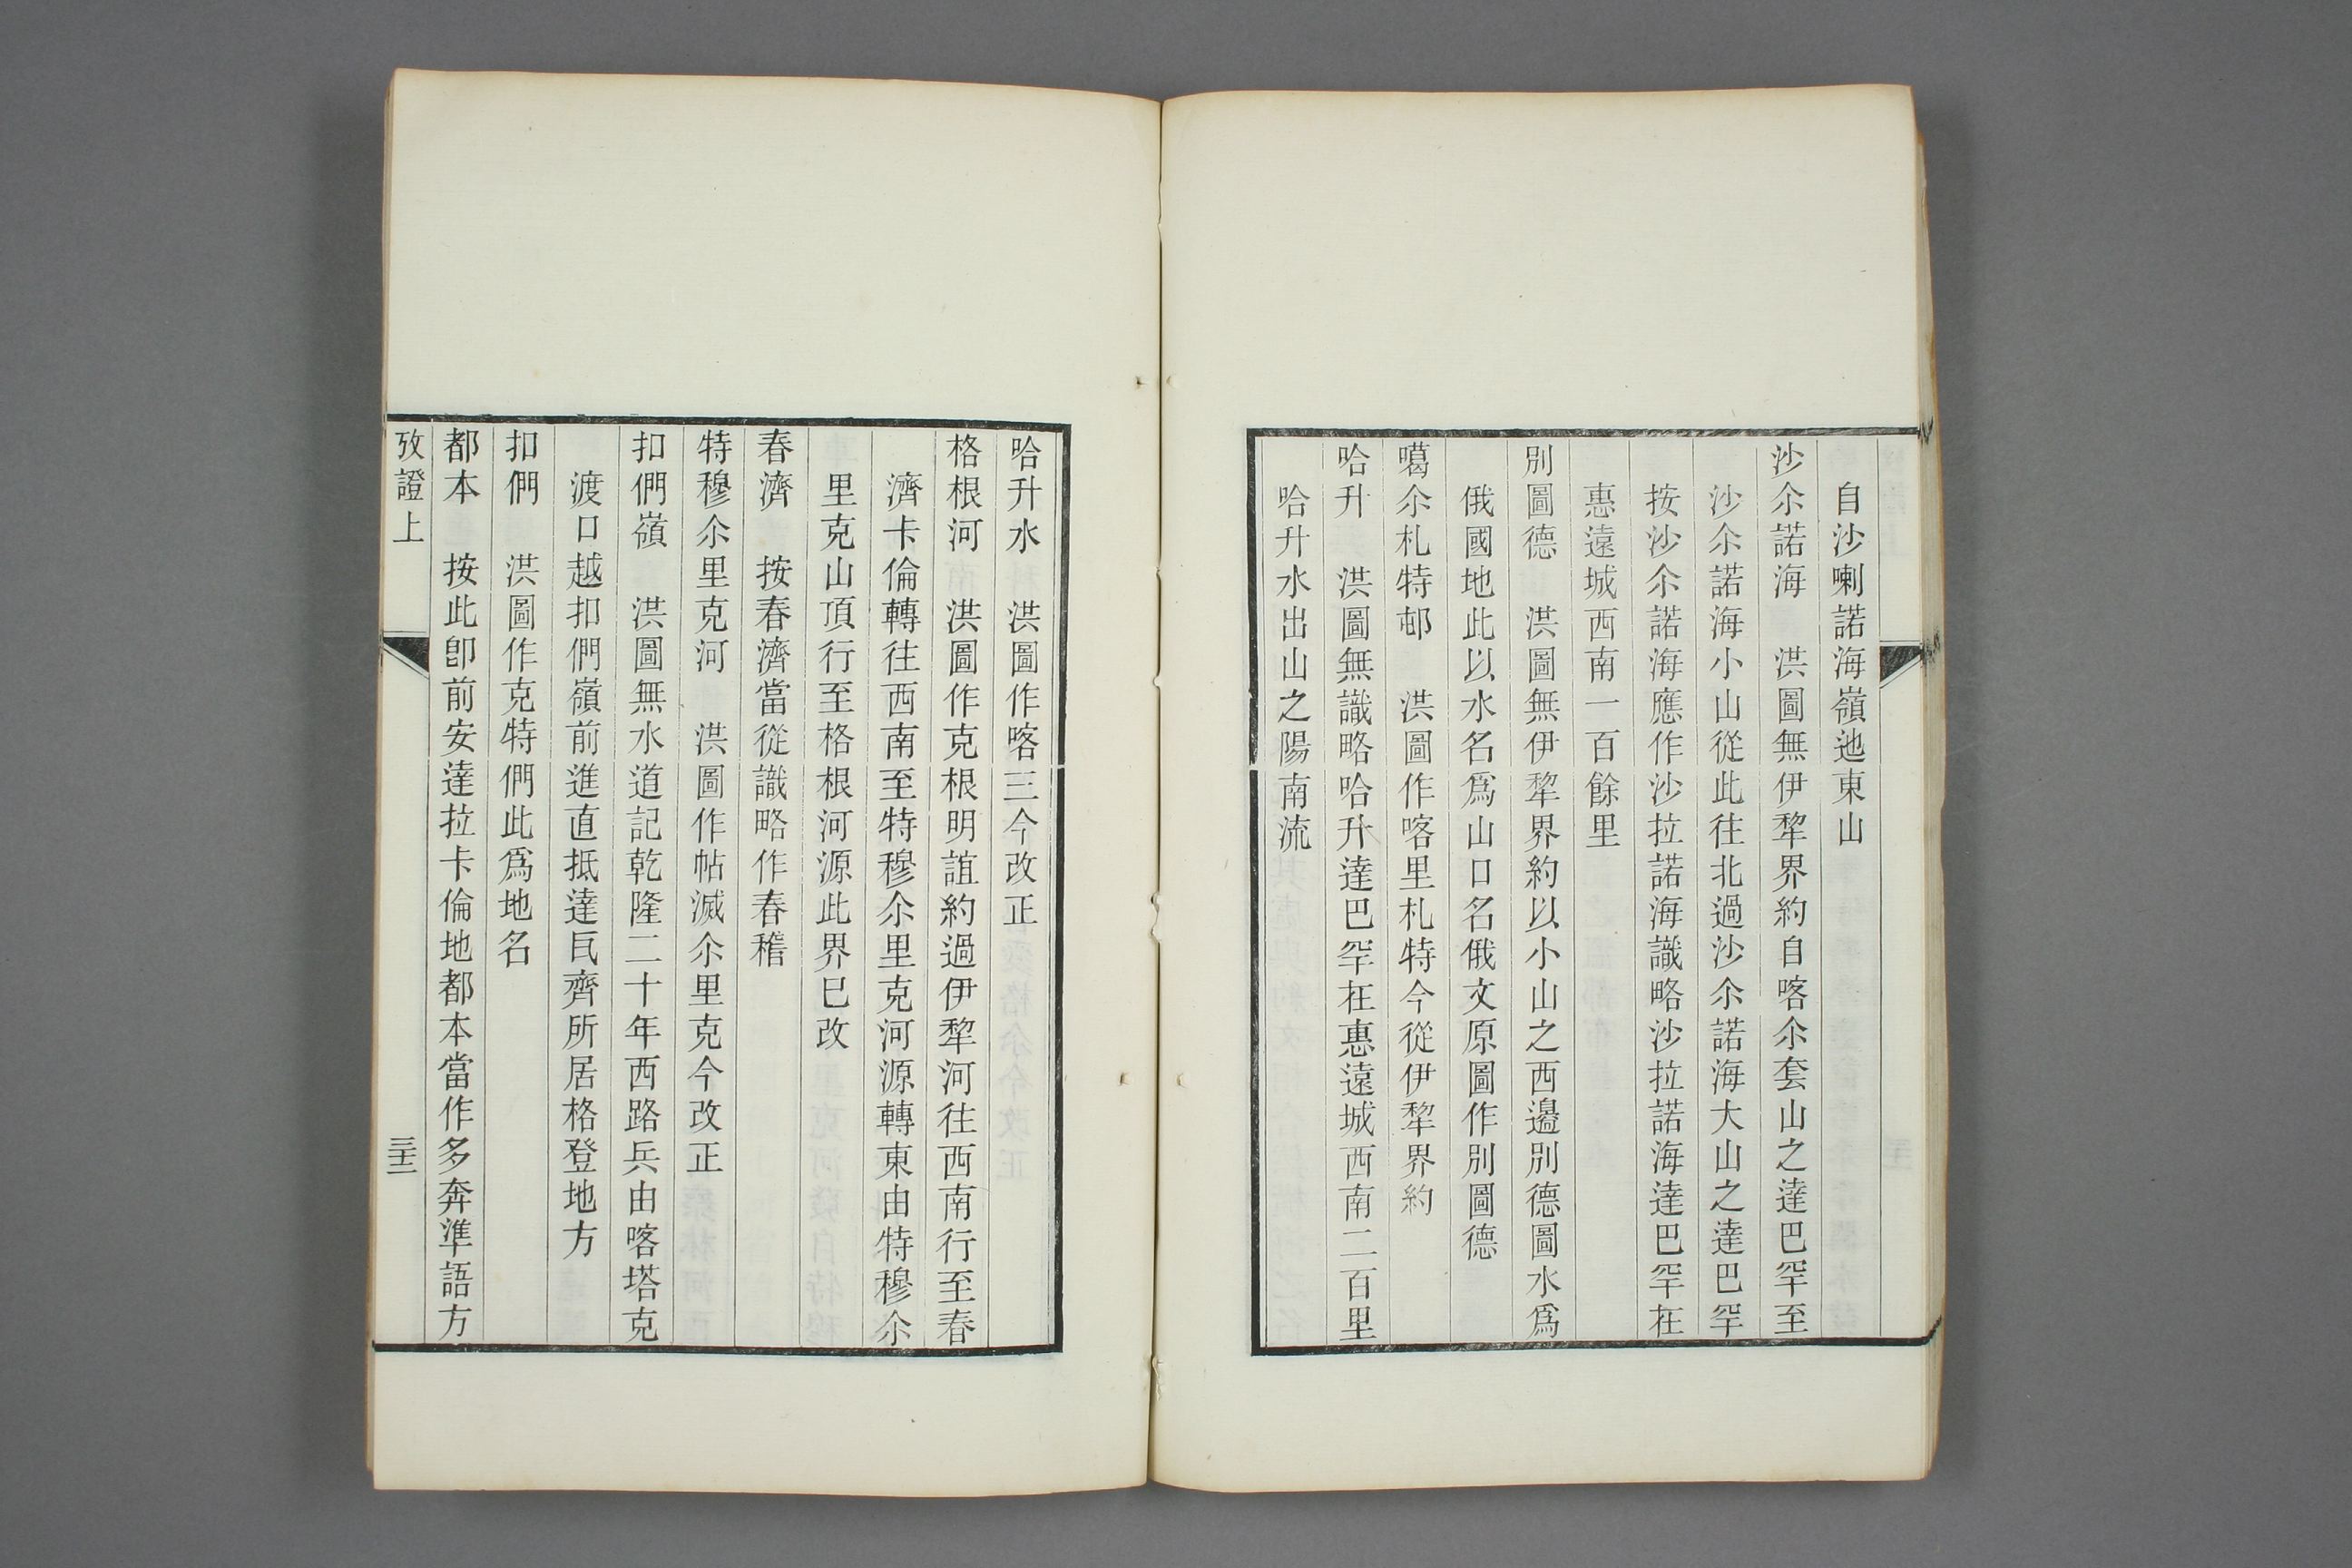 自沙喇諾海嶺迆東山
沙尒諾海　洪圖無伊犂界約自喀尒套山之達巴罕至
沙尒諾海小山從此往北過沙尒諾海大山之達巴罕
按沙尒諾海應作沙拉諾海識略沙拉諾海達巴罕在
惠遠城西南一百餘里
別圖德　洪圖無伊犂界約以小山之西邊別德圖水爲
俄國地此以水名爲山口名俄文原圖作別圖德
噶尒札特邨　洪圖作喀里札特今從伊犂界約
哈升　洪圖無識略哈升達巴罕在惠遠城西南二百里
哈升水出山之陽南流
哈升水　洪圖作喀三今改正
格根河　洪圖作克根明誼約過伊犂河往西南行至春
濟卡倫轉往西南至特穆尒里克河源轉東由特穆尒
里克山頂行至格根河源此界巳改
春濟　按春濟當從識略作春稽
特穆尒里克河　洪圖作帖滅尒里克今改正
扣們嶺　洪圖無水道記乾隆二十年西路兵由喀塔克
渡口越扣們嶺前進直抵達瓦齊所居格登地方
扣們　洪圖作克特們此爲地名
都本　按此卽前安達拉卡倫地都本當作多奔準語方
攷證上
三十二